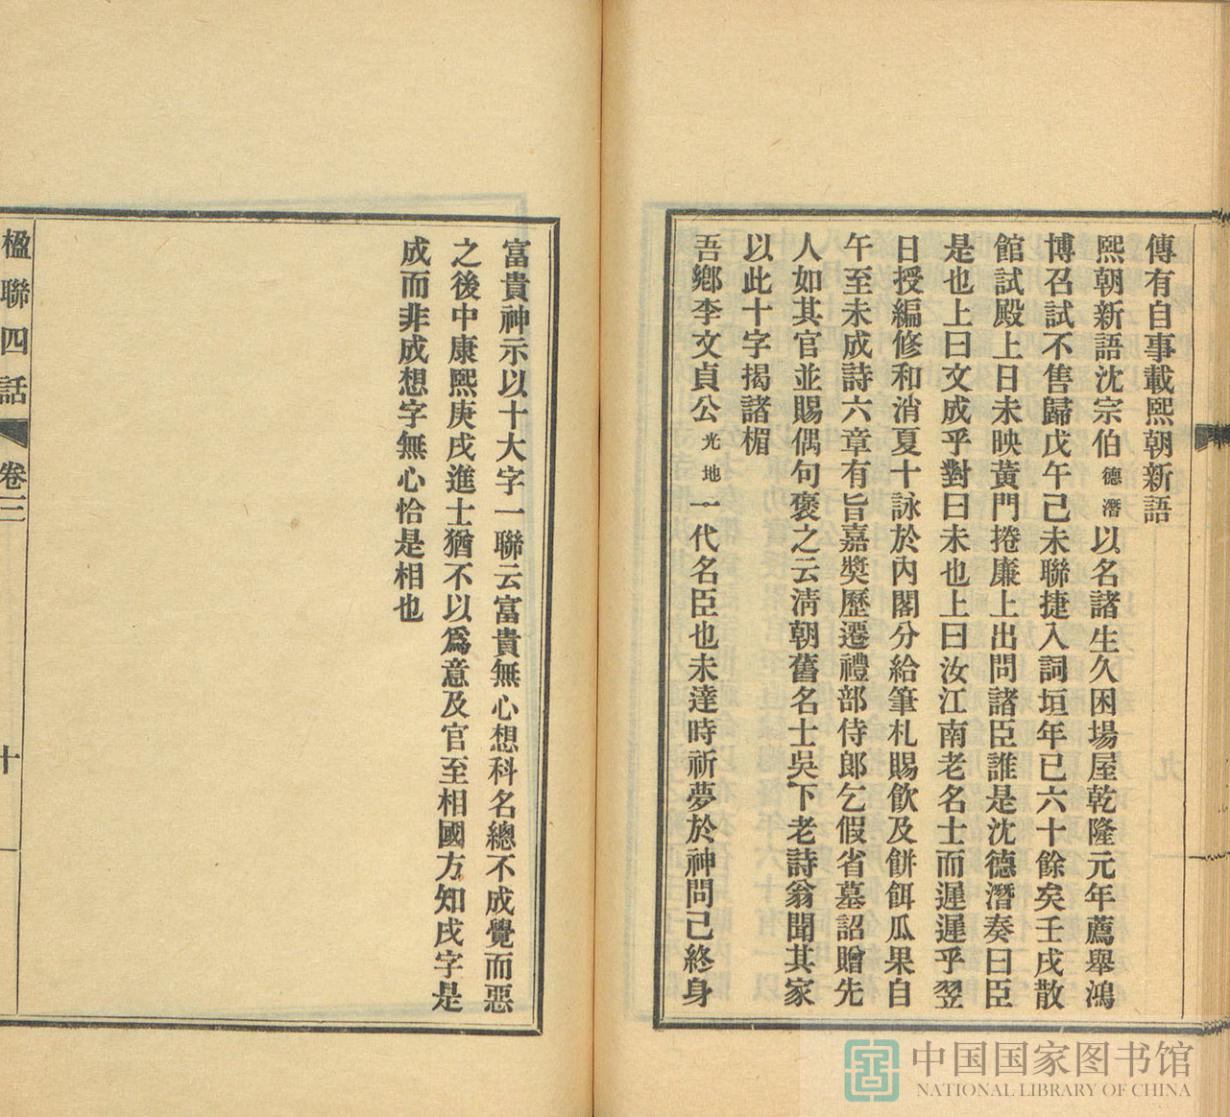 傳有自事載熙朝新語
熙朝新語沈宗伯德潛以名諸生久困場屋乾隆元年薦舉鴻
博召試不售歸戊午己未聯捷入詞垣年已六十餘矣壬戌散
館試殿上日未映黃門捲廉上出問諸臣誰是沈德潛奏曰臣
是也上曰文成乎對曰未也上曰汝江南老名士而遲遲乎翌
日授編修和消夏十詠於內閣分給筆札賜飲及餅餌瓜果自
午至未成詩六章有旨嘉獎歷遷禮部侍郎乞假省墓詔贈先
人如其官並賜偶句褒之云淸朝舊名士吳下老詩翁聞其家
以此十字揭諸楣
吾鄉李文貞公光地一代名臣也未達時祈夢於神問己終身
富貴神示以十大字一聯云富貴無心想科名總不成覺而惡
之後中康熙庚戌進士猶不以爲意及官至相國方知戌字是
成而非成想字無心恰是相也
楹聯四話
卷三
十
中国国家图书馆
NATIONAL LIBRARY OF CHINA